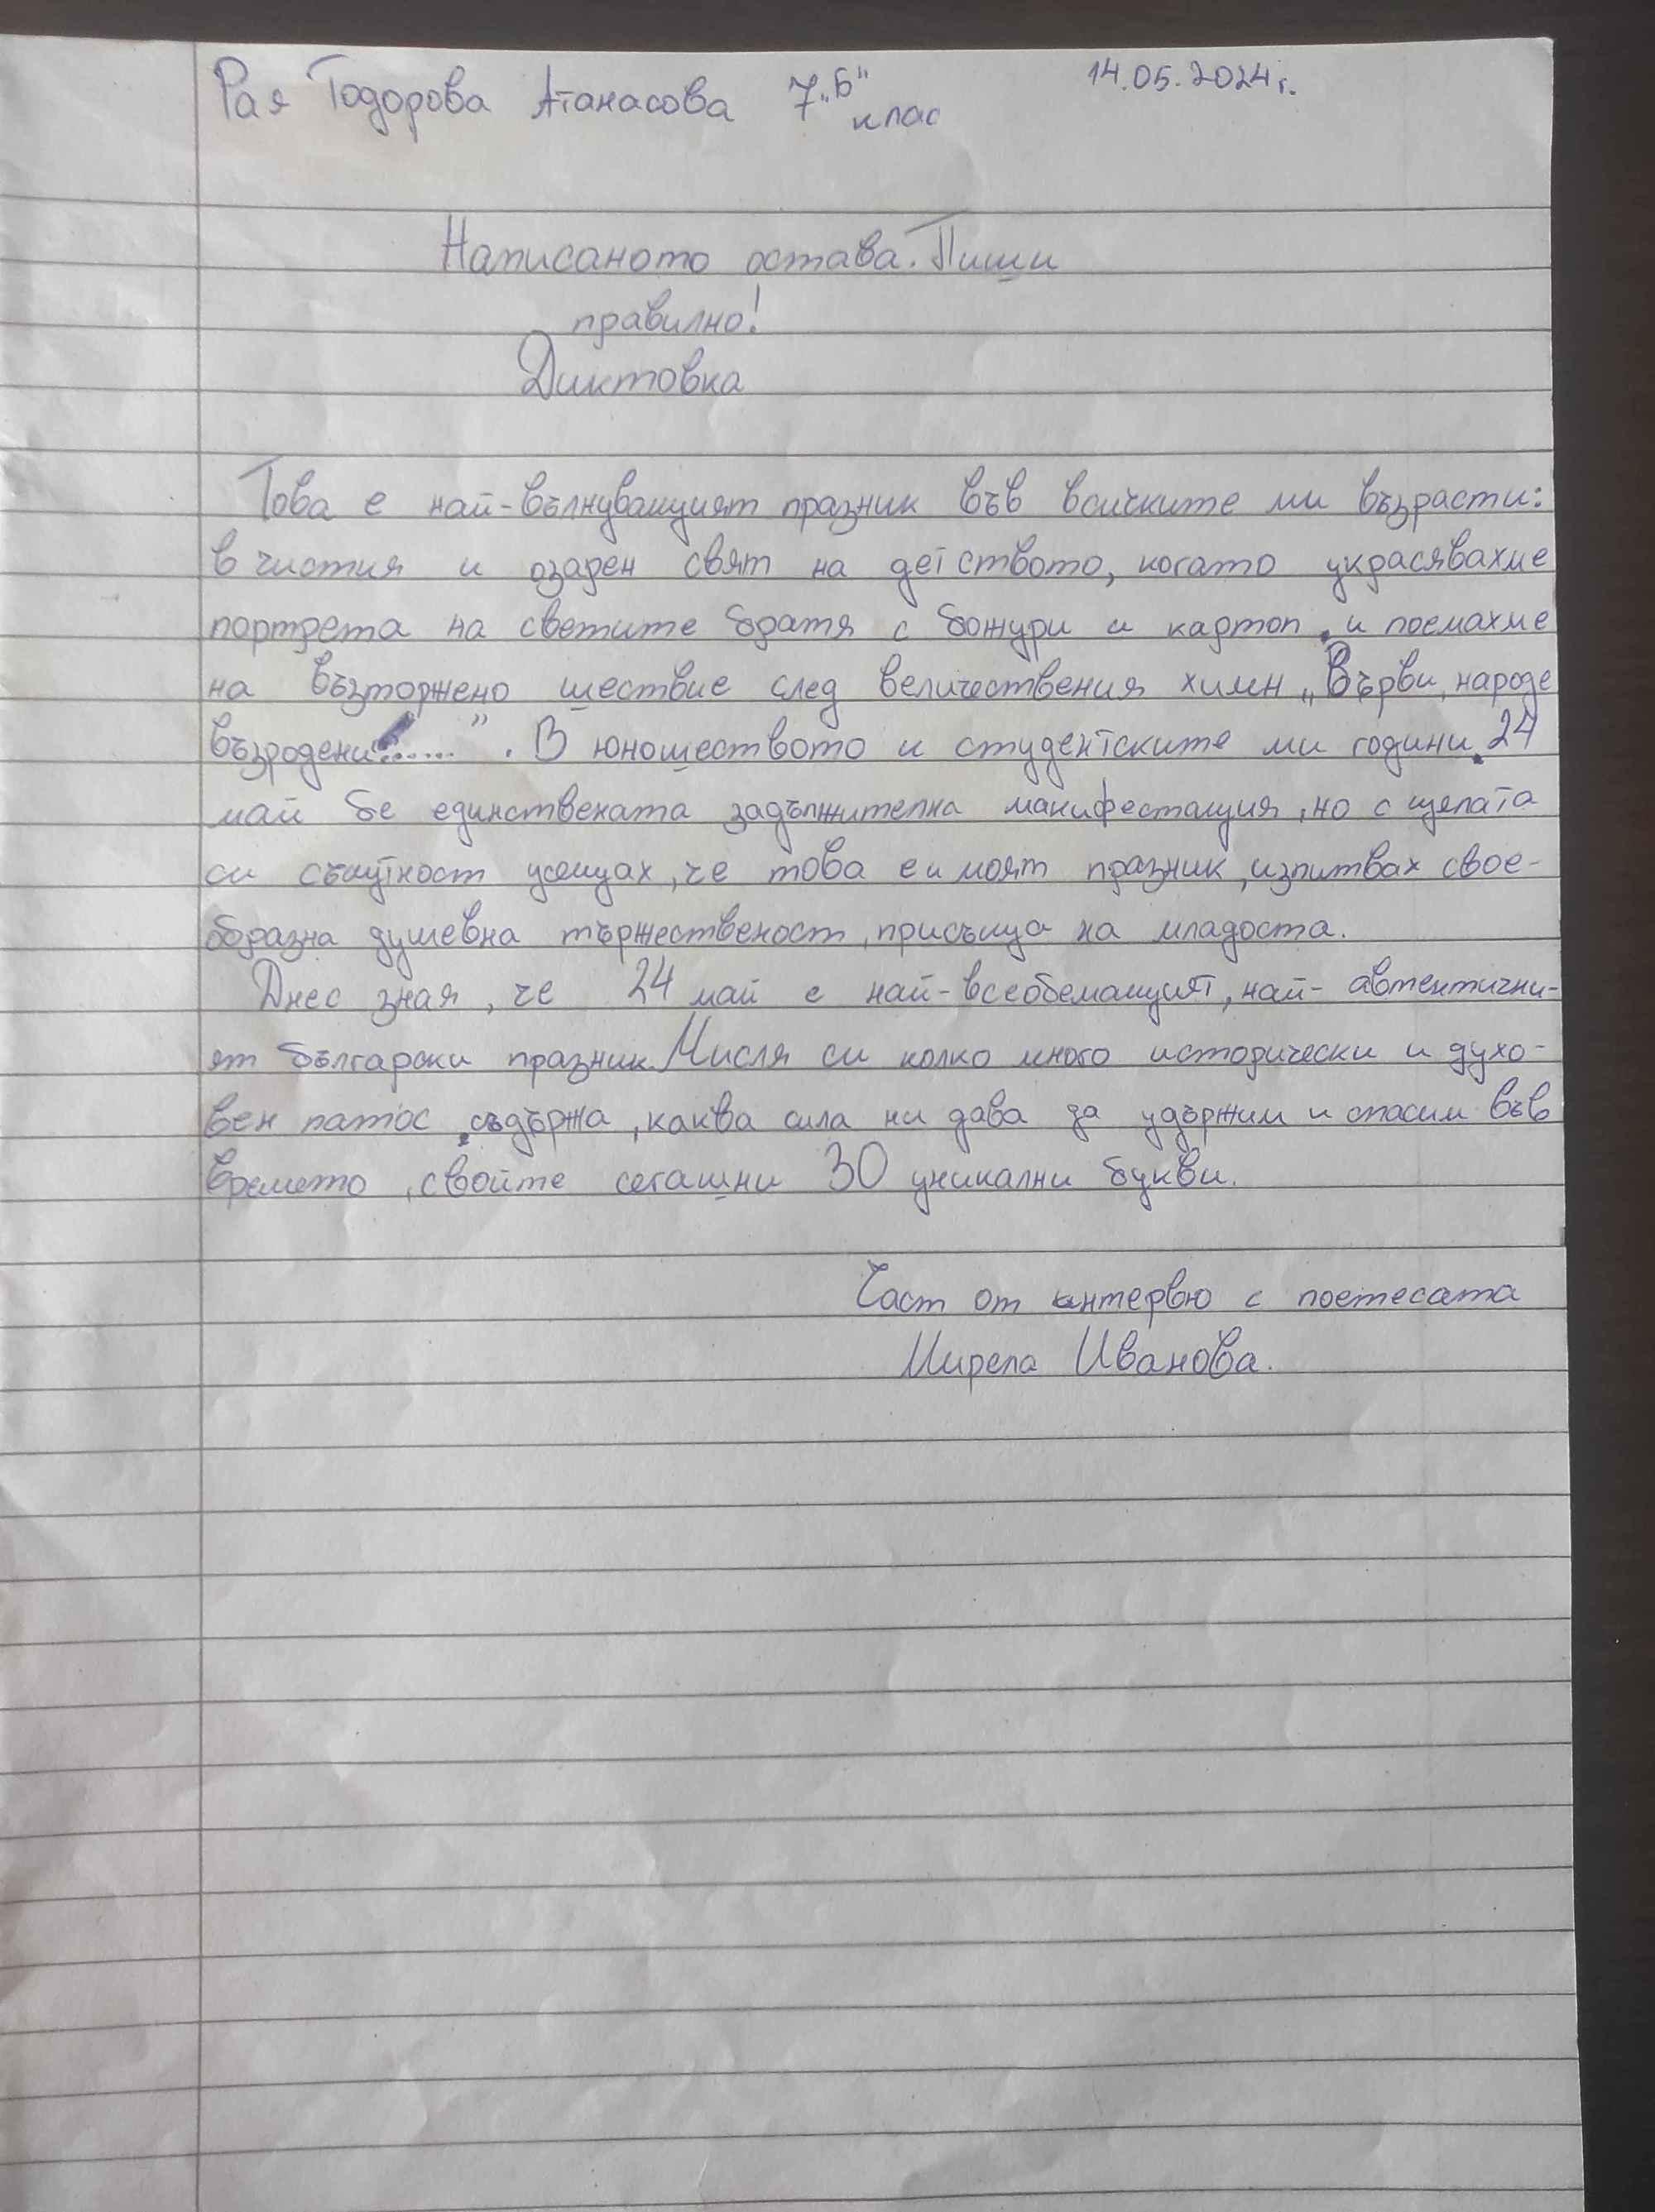 Рая Тодорова Атанасова 7 „Б" клас 14.05.2024 г.
Написаното остава. Пиши
правилно!
Диктовка
Това е най-вълнуващият празник във всичките ми възрасти:
в чистия и озарен свят на детството, когато украсявахме
портрета на светите братя с божури и картоп, и поемахме
на възторжено шествие след величествения химн „Върви, народе
възродени......". В юношеството и студентските ми години, 24
май бе единствената задължителна манифестация, но с цялата
си същтност усещах, че това е и моят празник, изпитвах свое-
образна душевна тържественост, присъща на младоста.
Днес зная, че 24 май е най-всеобемащият, най-автентични-
ят български празник. Мисля си колко много исторически и духо-
вен патос съдържа, каква сила ни дава да удържим и спасим във
времето, свойте сегашни 30 уникални букви.
Част от интервю с поетесата
Мирела Иванова.